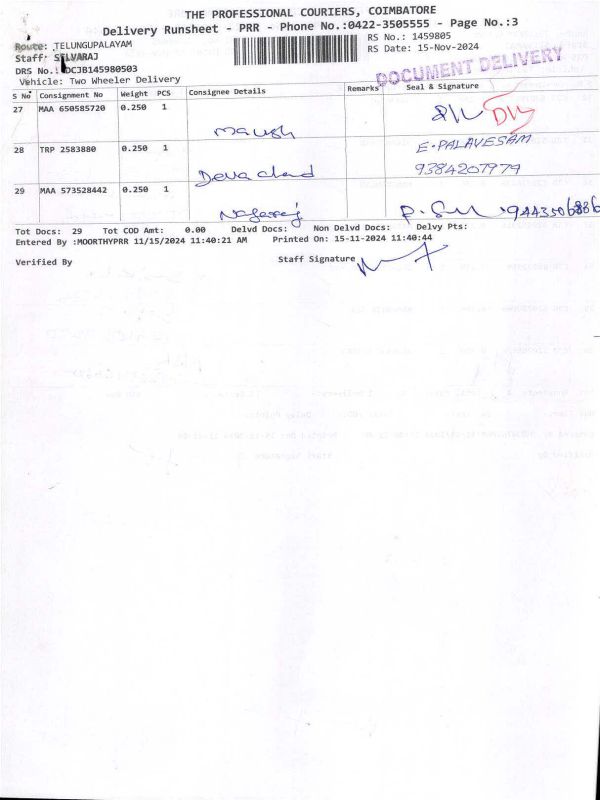 THE PROFESSIONAL COURIERS, COIMBATORE
Delivery Runsheet - PRR - Phone No.:0422-3505555 - Page No.:3
Route: TELUNGUPALAYAM
RS No.: 1459805
Staff: SELVARAJ
RS Date: 15-Nov-2024
DRS No.: DCJB145980503
Vehicle: Two Wheeler Delivery
DOCUMENT DELIVERY
S No Consignment No Weight PCS Consignee Details Remarks Seal & Signature
27 MAA 650585720 0.250 1
28 TRP 2583880 0.250 1 Deva chand E. PALAVESAM
9384207979
29 MAA 573528442 0.250 1 Nagaraj
Tot Docs: 29 Tot COD Amt: 0.00 Delvd Docs: Non Delvd Docs: Delvy Pts:
Entered By :MOORTHYPRR 11/15/2024 11:40:21 AM Printed On: 15-11-2024 11:40:44
Verified By Staff Signature